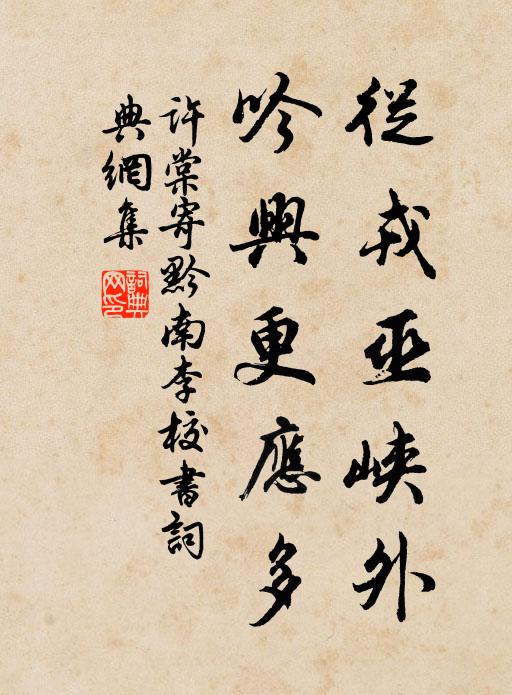 從戎巫峽外
吟興更應多
許棠寄黔南李校書詞
典網集
詞典网印